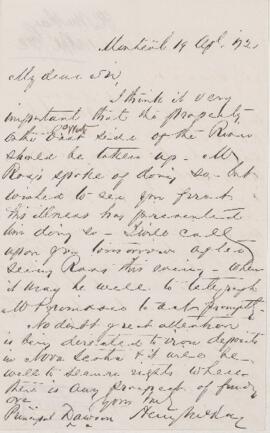 Montreal 19 Apl. 172
My dear Sir,
I think it very
important that the property
on the East side of the River
should be taken up - Mr
Ross spoke of doing so - but
wished to see you first
His illness has prevented
him doing so - I will call
upon you tomorrow after
seeing Ross this evening - when
it may be well to telegraph
Mr to act promptly
No doubt great attention
is being directed to iron deposits
in Nova Scotia & it will be
well to secure rights where
there is any prospect of finding
ore
Yours truly
Principal Dawson